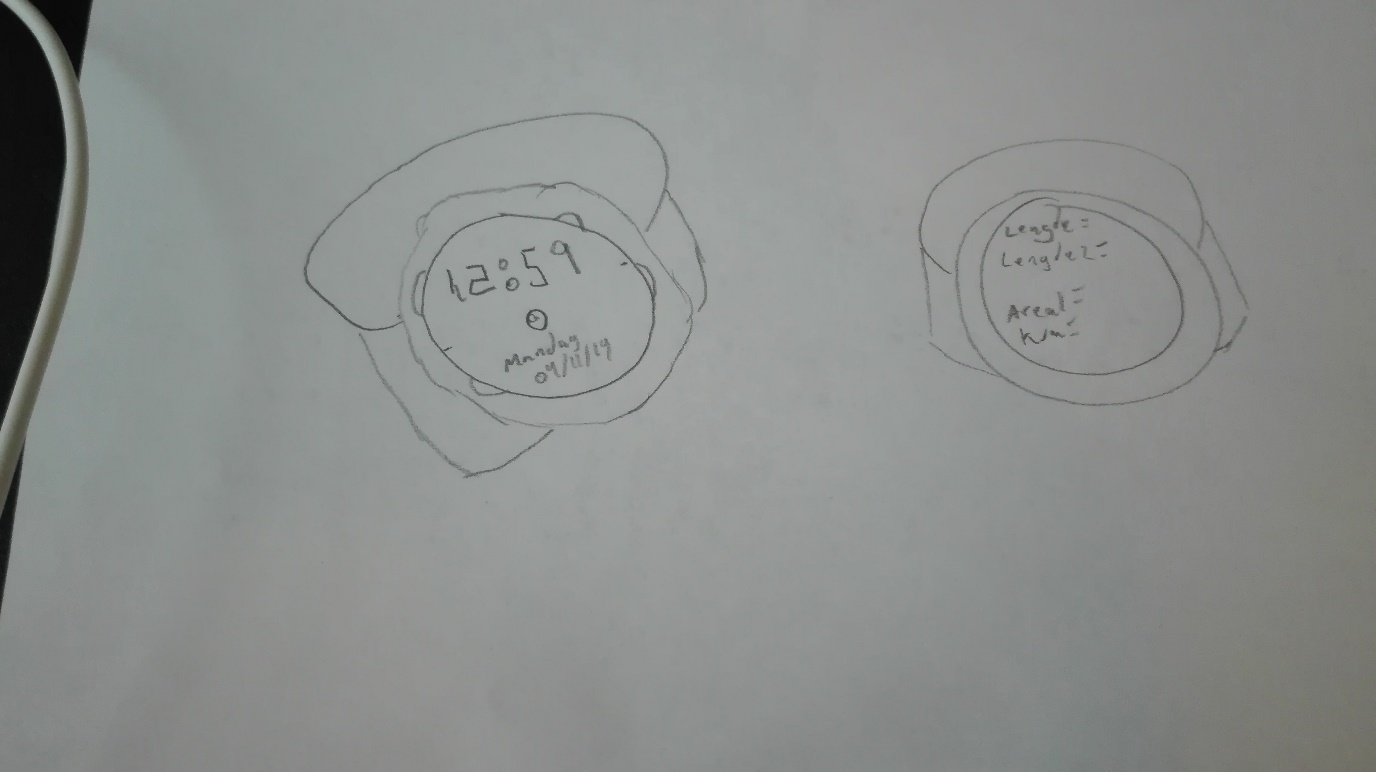 12:59
Mandag
04/11/19
Lengde=
Lengde2=
Areal=